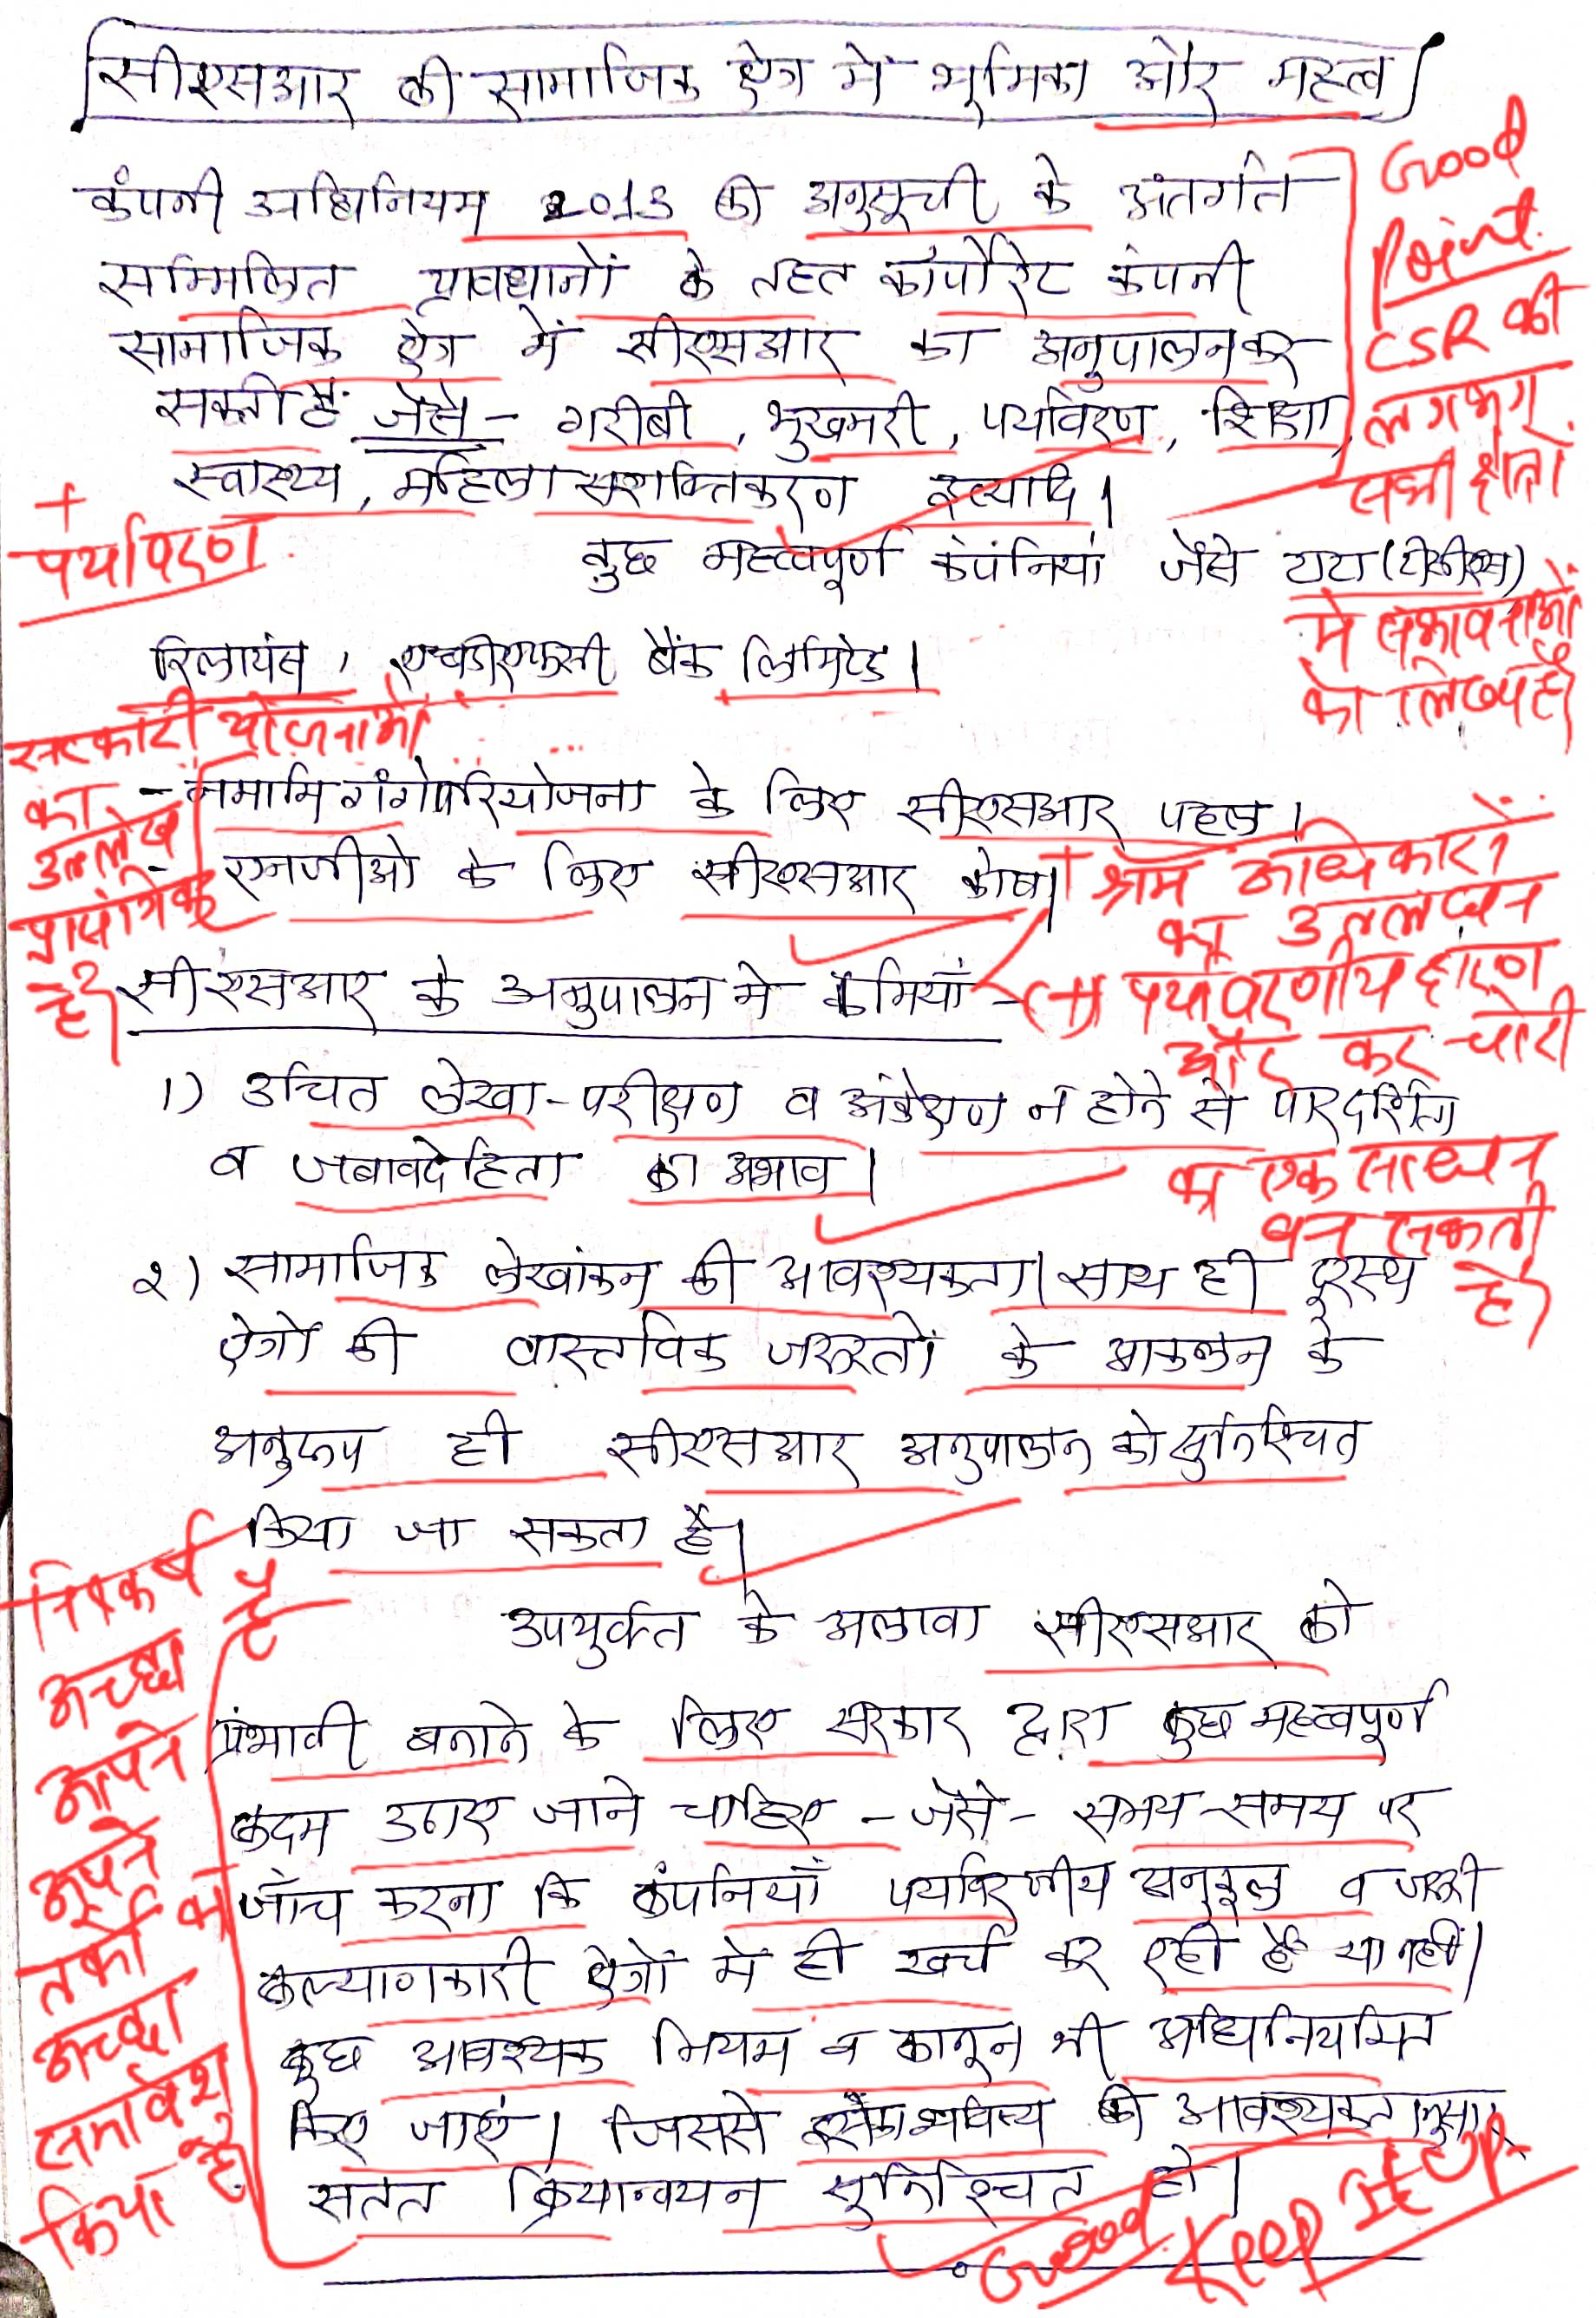 सीएसआर की सामाजिक क्षेत्र में भूमिका और महत्व
कंपनी अधिनियम 2013 की अनुसूची के अंतर्गत
सम्मिलित प्रावधानों के तहत कॉर्पोरेट कंपनी
सामाजिक क्षेत्र में सीएसआर का अनुपालन कर
सकती हैं जैसे - गरीबी, भुखमरी, पर्यावरण, शिक्षा,
स्वास्थ्य, महिला सशक्तिकरण इत्यादि।
Good
Point.
CSR की
लगभग
सभी क्षेत्रों
में संभावनाओं
को लिखा है।
+
पर्यावरण
कुछ महत्वपूर्ण कंपनियां जैसे टाटा (टीसीएस)
रिलायंस, एचडीएफसी बैंक लिमिटेड।
सरकारी योजनाओं
का
उल्लेख
प्रासंगिक
है।
- नमामि गंगे परियोजना के लिए सीएसआर पहल।
- एनजीओ के लिए सीएसआर कोष।
+ श्रम अधिकारों
का उल्लंघन
(+) पर्यावरणीय हरण
और कर चोरी
का एक साधन
बन सकती
है।
सीएसआर के अनुपालन में कमियाँ -
1) उचित लेखा-परीक्षण व अंकेक्षण न होने से पारदर्शिता
व जबावदेहिता का अभाव।
२) सामाजिक लेखांकन की आवश्यकता। साथ ही दूरस्थ
क्षेत्रों की वास्तविक जरूरतों के आकलन के
अनुरूप ही सीएसआर अनुपालन को सुनिश्चित
किया जा सकता है।
उपर्युक्त के अलावा सीएसआर को
प्रभावी बनाने के लिए सरकार द्वारा कुछ महत्वपूर्ण
कदम उठाए जाने चाहिए - जैसे - समय-समय पर
जाँच करना कि कंपनियाँ पर्यावरणीय अनुकूल व जरूरी
कल्याणकारी क्षेत्रों में ही खर्च कर रही हैं या नहीं।
कुछ आवश्यक नियम व कानून भी अधिनियमित
किए जाएं। जिससे इसके भविष्य की आवश्यकतानुसार
सतत क्रियान्वयन सुनिश्चित हो।
निष्कर्ष
अच्छा है
आपने
अपने
तर्कों का
अच्छा
समावेश
किया है।
Good
Keep it up.